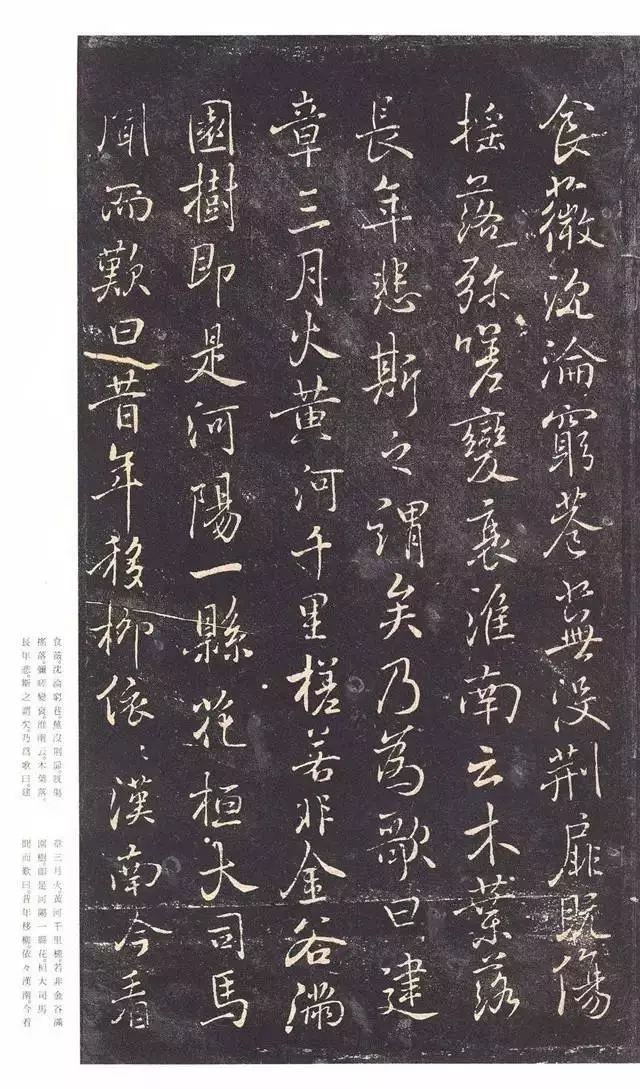 食薇沉淪窮巷蕪沒荊扉既傷
搖落弥嗟變衰淮南云木葉落
長年悲斯之謂矣乃為歌曰建
章三月火黃河千里槎若非金谷滿
園樹即是河陽一縣花桓大司馬
聞而歎曰昔年移柳依〻漢南今看
食薇。沈淪窮巷。蕪沒荊扉。既傷
搖落。彌嗟變衰。淮南云。木葉落。
長年悲。斯之謂矣。乃爲歌曰。建
章三月火。黃河千里槎。若非金谷滿
園樹。即是河陽一縣花。桓大司馬
聞而歎曰。昔年移柳。依々漢南。今看